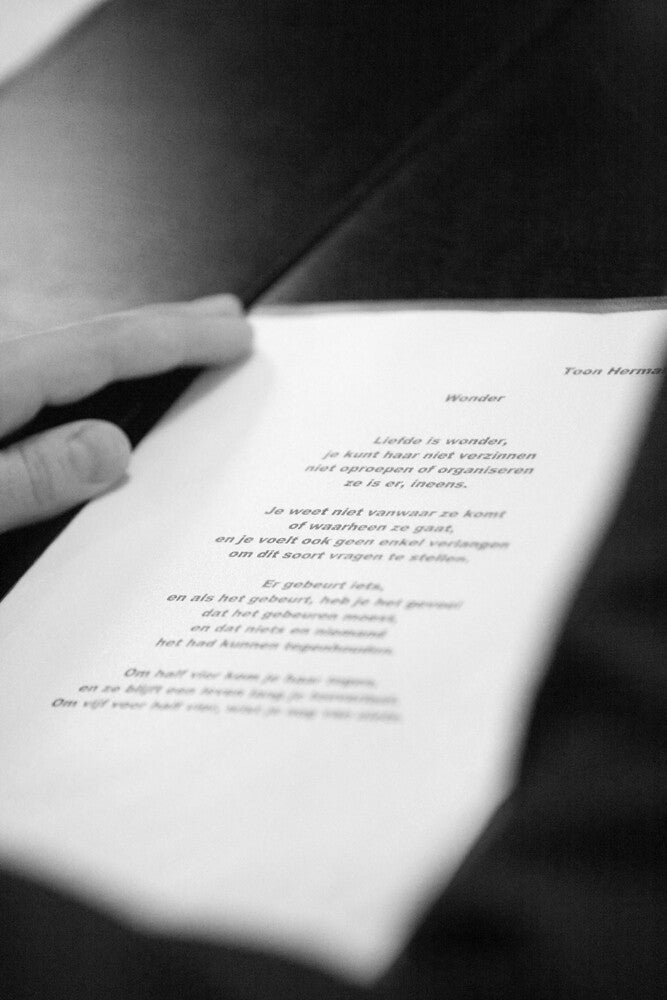 Toon Herma
Wonder
Liefde is wonder,
je kunt haar niet verzinnen
niet oproepen of organiseren
ze is er, ineens.
Je weet niet vanwaar ze komt
of waarheen ze gaat,
en je voelt ook geen enkel verlangen
om dit soort vragen te stellen.
Er gebeurt iets,
en als het gebeurt, heb je het gevoel
dat het gebeuren moest,
en dat niets en niemand
het had kunnen tegenhouden.
Om half vier kom je haar tegen,
en ze blijft een leven lang je
Om vijf voor half vier, wist je nog van niets.